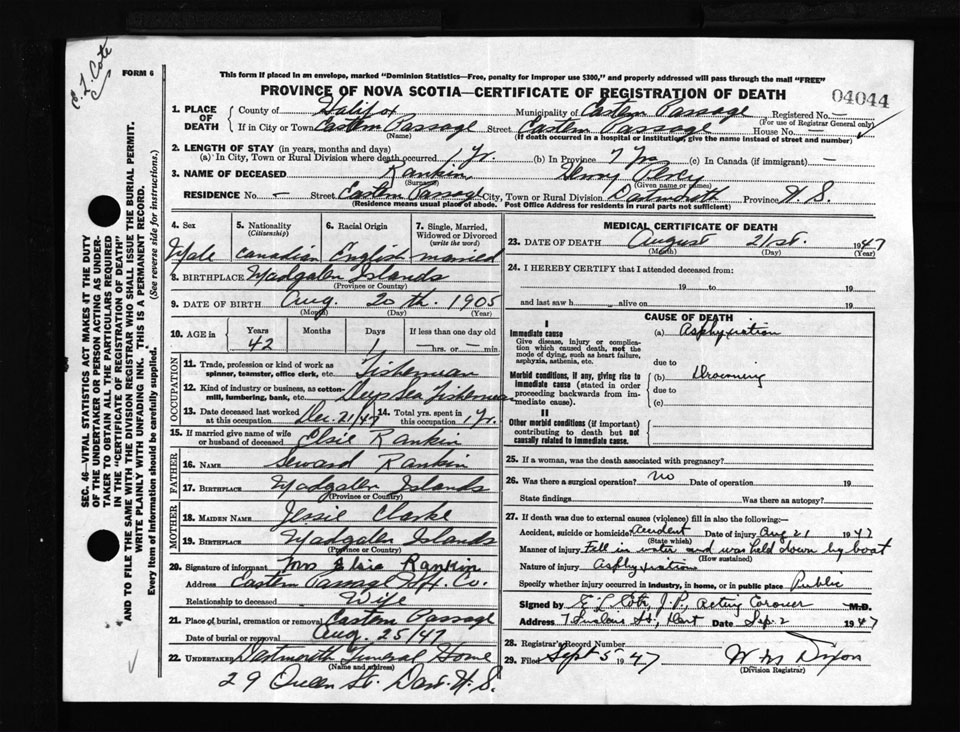 E. L. Cote
FORM 6
This form if placed in an envelope, marked "Dominion Statistics—Free, penalty for improper use $300," and properly addressed will pass through the mail "FREE"
PROVINCE OF NOVA SCOTIA—CERTIFICATE OF REGISTRATION OF DEATH
04044
1. PLACE OF DEATH County of Halifax Municipality of Eastern Passage Registered No. —
(For use of Registrar General only)
If in City or Town Eastern Passage Street Eastern Passage House No. —
(Name) (If death occurred in a hospital or institution, give the name instead of street and number)
2. LENGTH OF STAY (in years, months and days)
(a) In City, Town or Rural Division where death occurred 1 Yr. (b) In Province 7 Yrs (c) In Canada (if immigrant) —
3. NAME OF DECEASED Rankin Henry Percy
(Surname) (Given name or names)
RESIDENCE No. — Street Eastern Passage City, Town or Rural Division Dartmouth Province N. S.
(Residence means usual place of abode. Post Office Address for residents in rural parts not sufficient)
4. Sex 5. Nationality (Citizenship) 6. Racial Origin 7. Single, Married, Widowed or Divorced (write the word)
Male Canadian English married
8. BIRTHPLACE Madgalen Islands
(Province or Country)
9. DATE OF BIRTH Aug. 20 th. 1905
(Month) (Day) (Year)
10. AGE in Years Months Days If less than one day old
42 1 —hrs. or —min.
OCCUPATION
11. Trade, profession or kind of work as spinner, teamster, office clerk, etc. Fisherman
12. Kind of industry or business, as cotton-mill, lumbering, bank, etc. Deep Sea Fisherman
13. Date deceased last worked at this occupation Dec. 21/47 14. Total yrs. spent in this occupation 1 yr.
15. If married give name of wife or husband of deceased Elsie Rankin
FATHER
16. NAME Seward Rankin
17. BIRTHPLACE Madgalen Islands
(Province or Country)
MOTHER
18. MAIDEN NAME Jessie Clarke
19. BIRTHPLACE Madgalen Islands
(Province or Country)
20. Signature of informant Mrs Elsie Rankin
Address Eastern Passage Hfx. Co.
Relationship to deceased Wife
21. Place of burial, cremation or removal Eastern Passage
Date of burial or removal Aug. 25/47
22. UNDERTAKER Dartmouth Funeral Home
(Name and address)
29 Queen St. Dart. N. S.
MEDICAL CERTIFICATE OF DEATH
23. DATE OF DEATH August 21st. 1947
(Month) (Day) (Year)
24. I HEREBY CERTIFY that I attended deceased from:
19 to 19
and last saw h alive on 19
CAUSE OF DEATH
I
Immediate cause (a) Asphyxiation
Give disease, injury or complication which caused death, not the mode of dying, such as heart failure, asphyxia, asthenia, etc.
due to
Morbid conditions, if any, giving rise to immediate cause (stated in order proceeding backwards from immediate cause). (b) Drowning
due to
(c)
II
Other morbid conditions (if important) contributing to death but not causally related to immediate cause.
25. If a woman, was the death associated with pregnancy?
26. Was there a surgical operation? No Date of operation 19
State findings Was there an autopsy?
27. If death was due to external causes (violence) fill in also the following:—
Accident, suicide or homicide? Accident Date of injury Aug 21 1947
(State which)
Manner of injury Fell in water and was held down by boat
(How sustained)
Nature of injury Asphyxiation
Specify whether injury occurred in industry, in home, or in public place Public
Signed by E L Cote, J. P., Acting Coroner M.D.
Address St, Dart Date Sep. 2 1947
28. Registrar's Record Number
29. Filed Sept 5 1947 W M Dixon
(Division Registrar)
SEC. 46—VITAL STATISTICS ACT MAKES IT THE DUTY
OF THE UNDERTAKER OR PERSON ACTING AS UNDER-
TAKER TO OBTAIN ALL THE PARTICULARS REQUIRED
IN THE "CERTIFICATE OF REGISTRATION OF DEATH"
AND TO FILE THE SAME WITH THE DIVISION REGISTRAR WHO SHALL ISSUE THE BURIAL PERMIT.
WRITE PLAINLY WITH UNFADING INK. THIS IS A PERMANENT RECORD.
Every item of information should be carefully supplied. (See reverse side for instructions.)